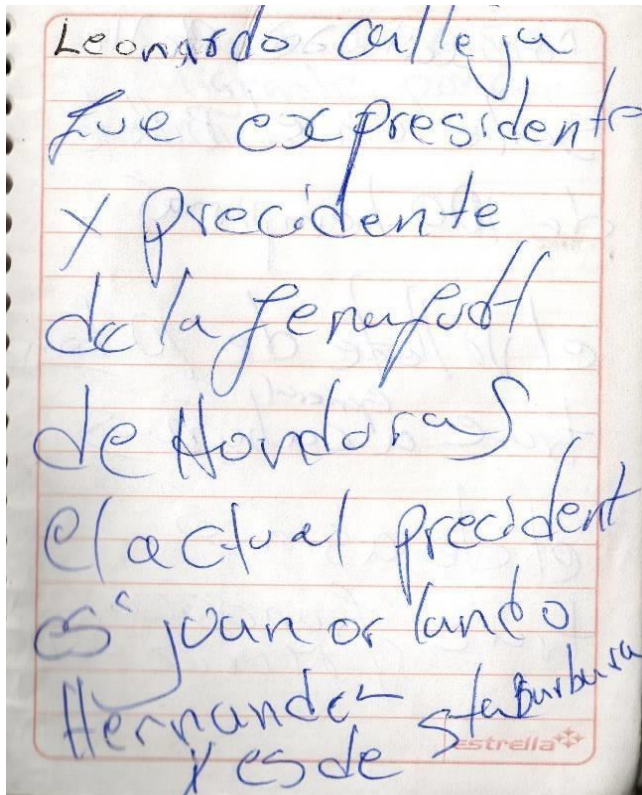 Leonardo Calleja
fue expresidente
y precidente
de la fenafuth
de Hondoras
el actual precident
es juan orlando
Hernandez
y es de Sta Burbura
estrella